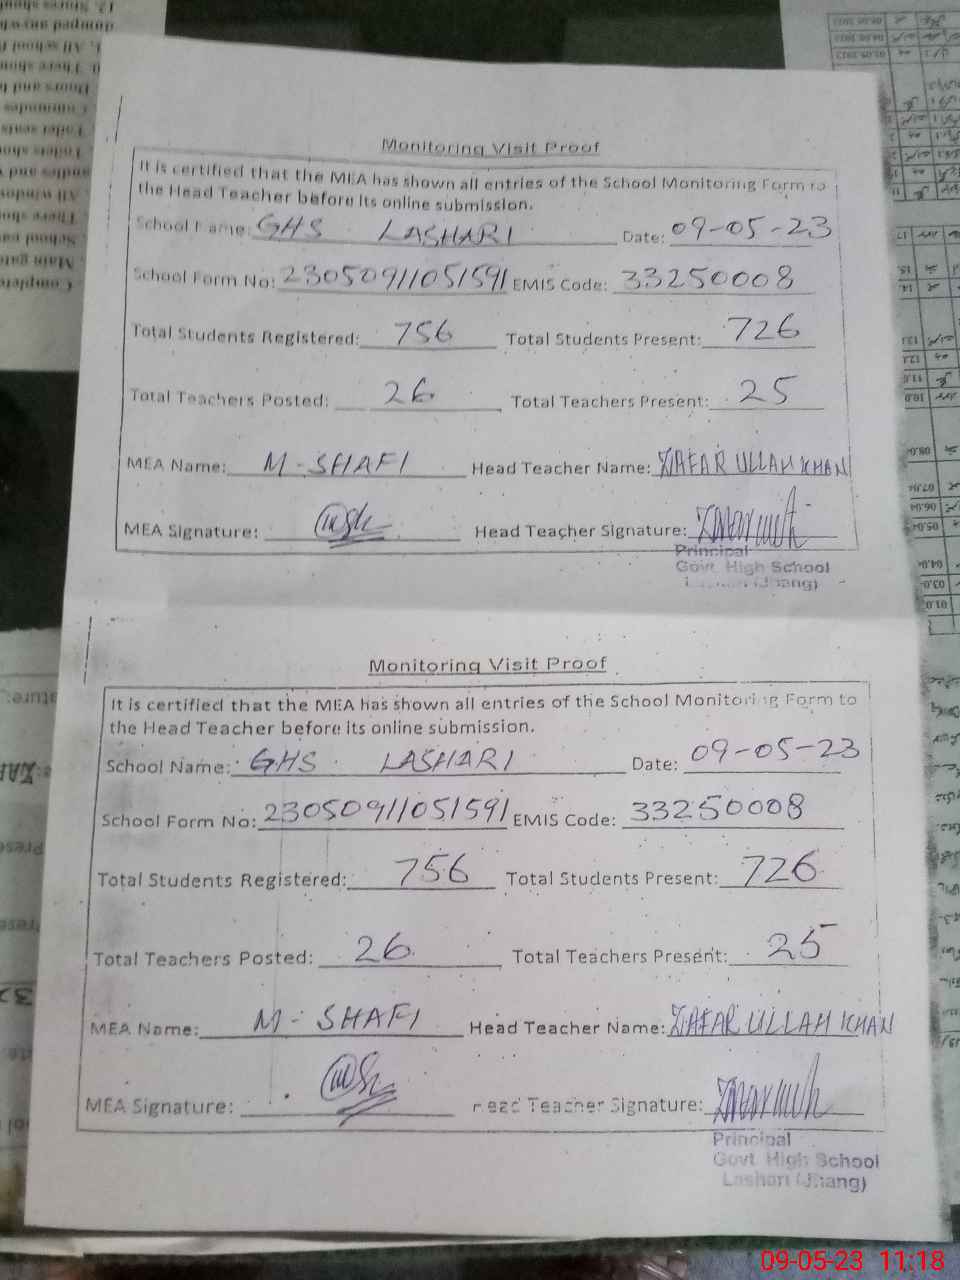 Monitoring Visit Proof
It is certified that the MEA has shown all entries of the School Monitoring Form to
the Head Teacher before its online submission.
School Name: GHS LASHARI Date: 09-05-23
School Form No: 23050911051591 EMIS Code: 33250008
Total Students Registered: 756 Total Students Present: 726
Total Teachers Posted: 26 Total Teachers Present: 25
MEA Name: M-SHAFI Head Teacher Name: ZAFAR ULLAH KHAN
MEA Signature: Head Teacher Signature:
Principal
Govt. High School
Lashari (Jhang)
Monitoring Visit Proof
It is certified that the MEA has shown all entries of the School Monitoring Form to
the Head Teacher before its online submission.
School Name: GHS LASHARI Date: 09-05-23
School Form No: 23050911051591 EMIS Code: 33250008
Total Students Registered: 756 Total Students Present: 726
Total Teachers Posted: 26 Total Teachers Present: 25
MEA Name: M-SHAFI Head Teacher Name: ZAFAR ULLAH KHAN
MEA Signature: Head Teacher Signature:
Principal
Govt. High School
Lashari (Jhang)
09-05-23 11:18